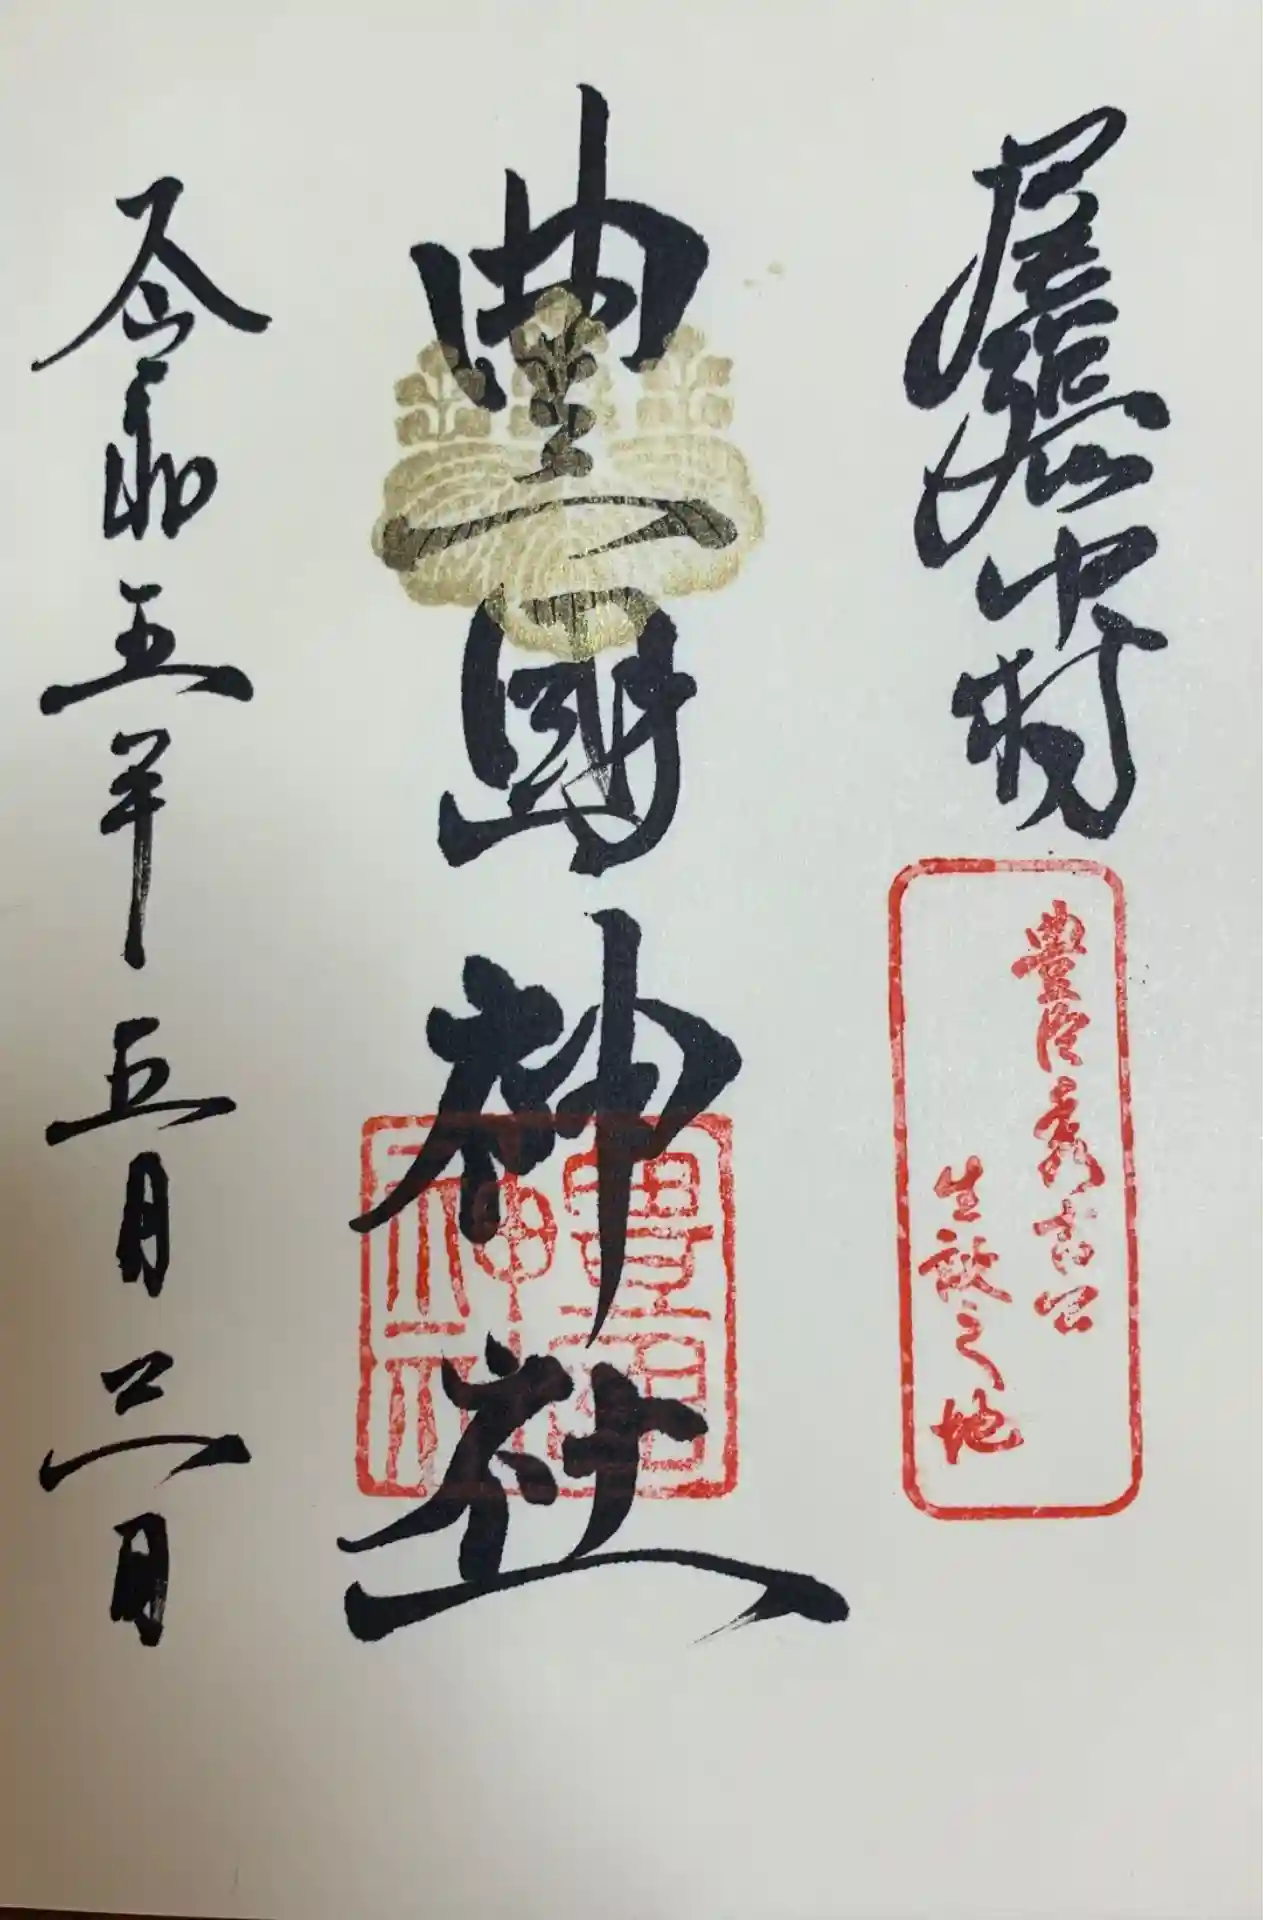 尾張中村
豊臣秀吉公
生誕之地
豊國神社
豊國
神社
令和五年五月三日